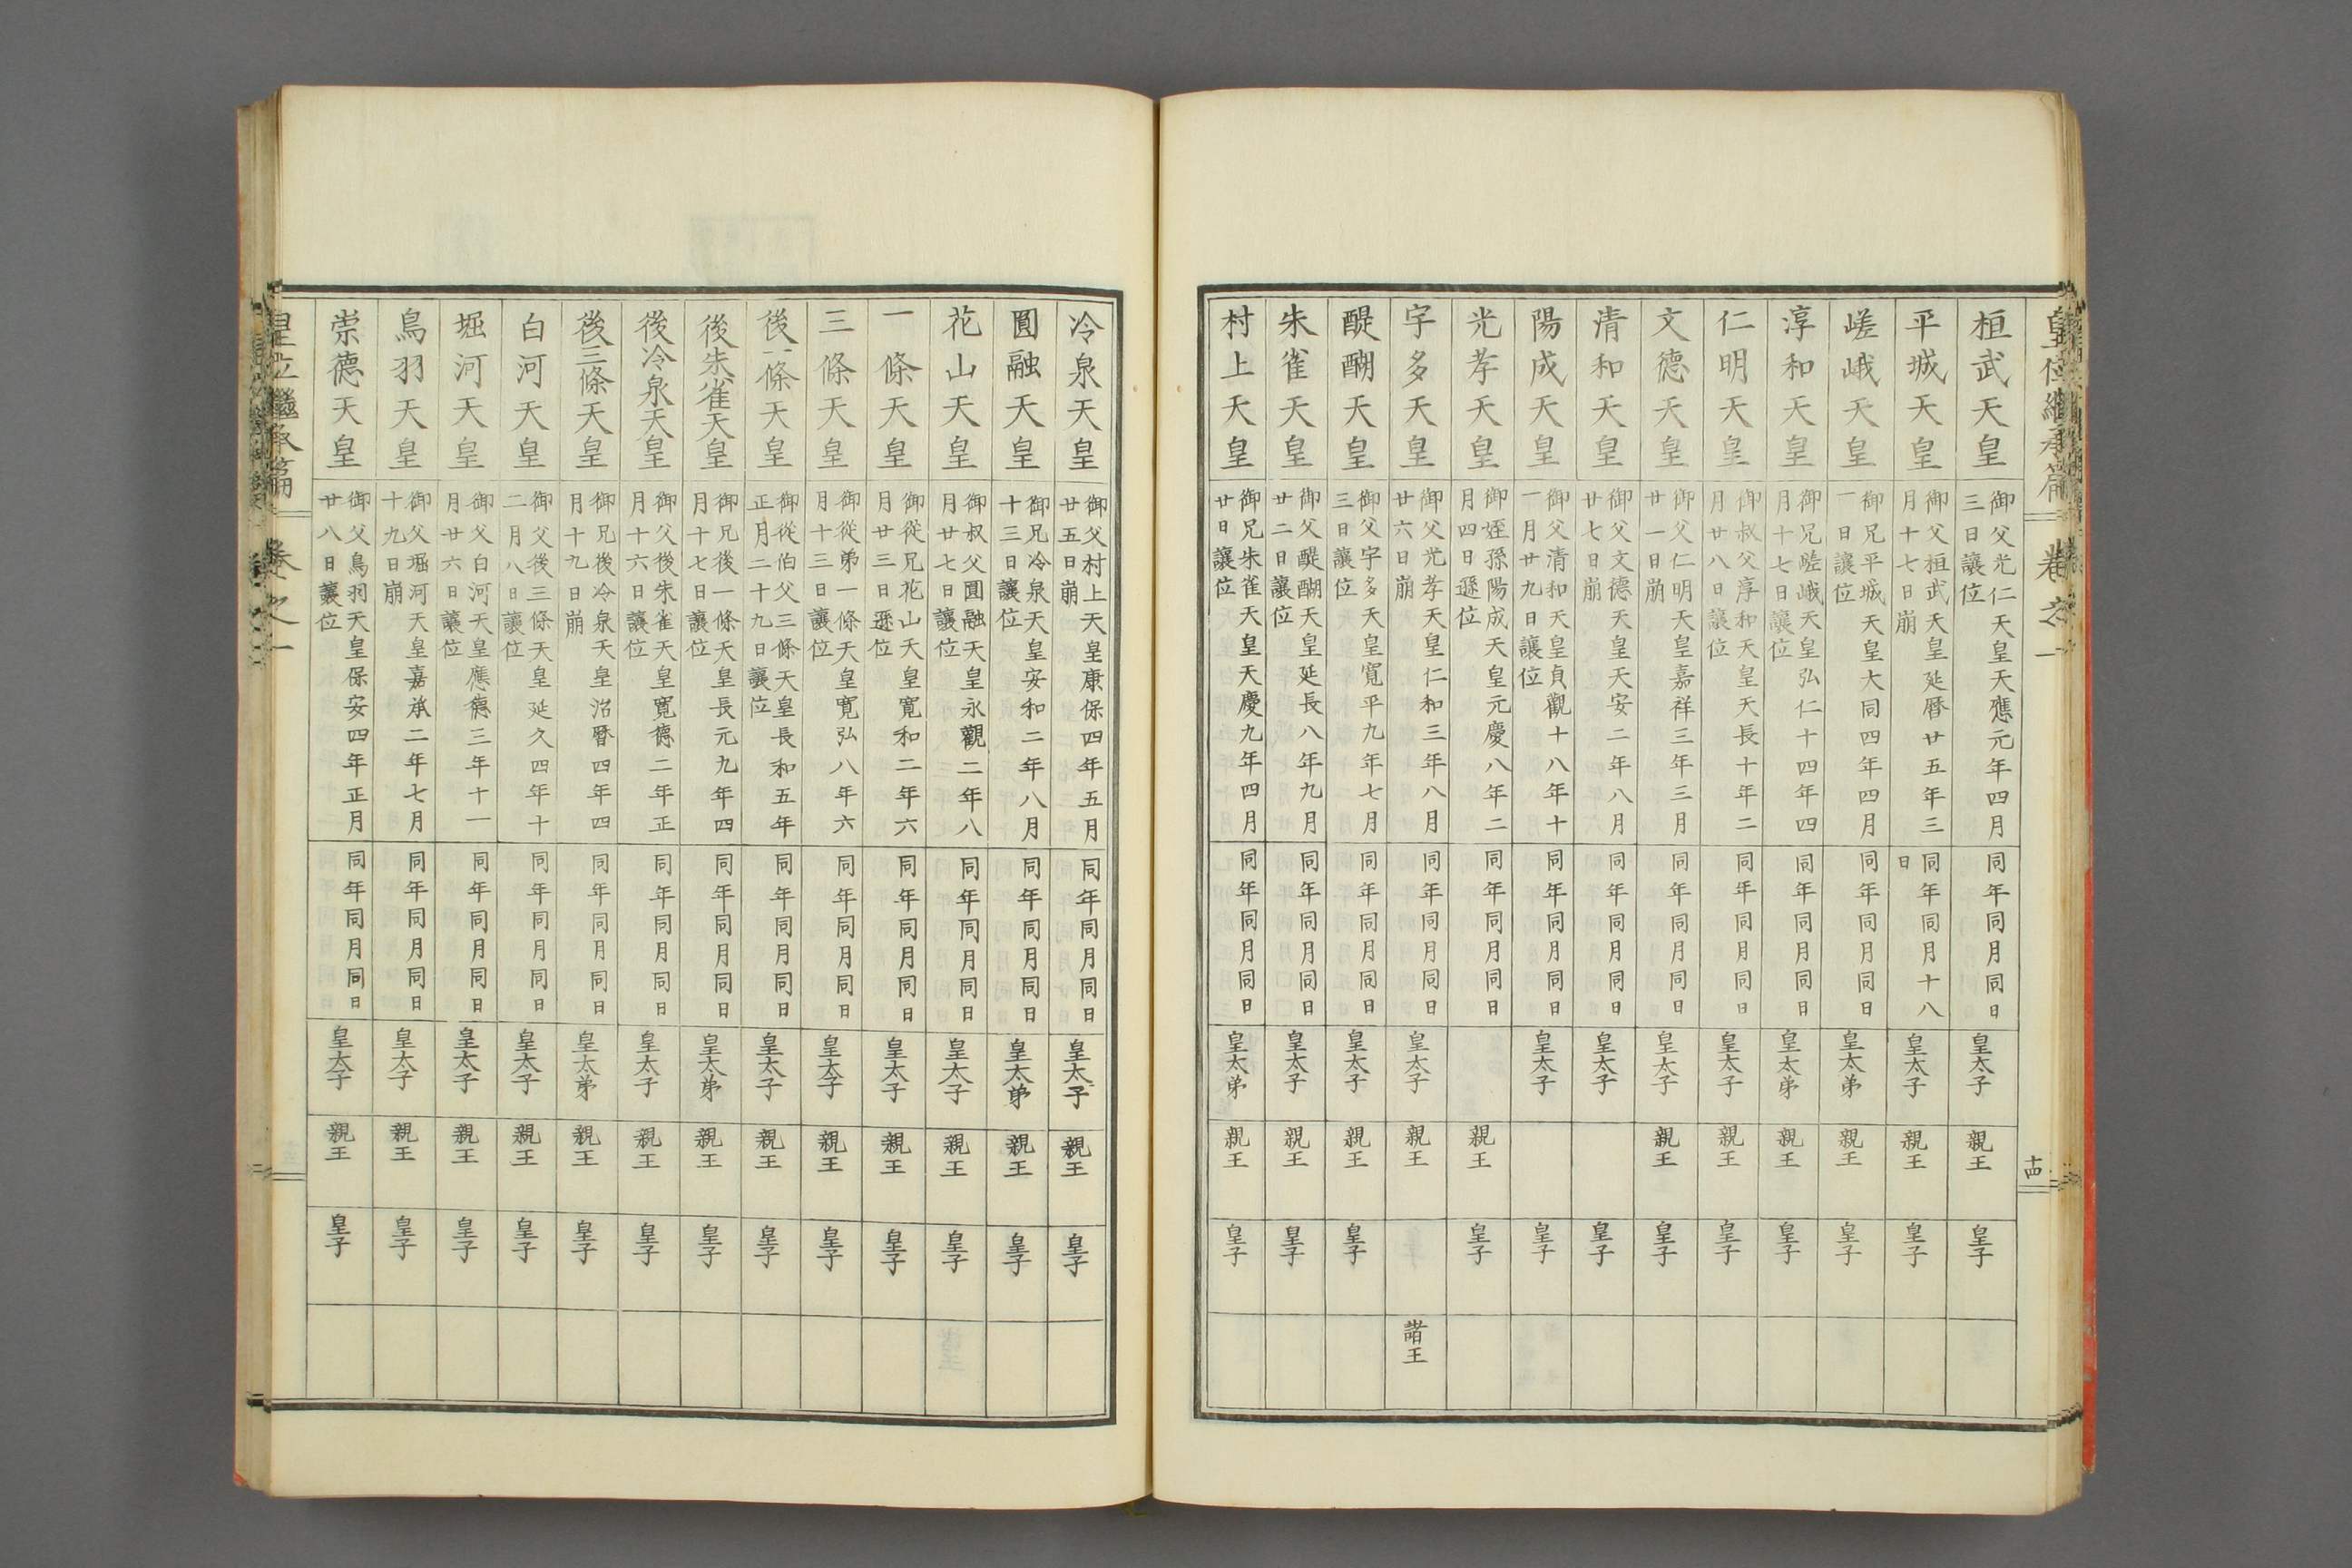 皇位繼承篇 卷之一 十四
桓武天皇
御父光仁天皇天應元年四月
三日讓位
同年同月同日
皇太子
親王
皇子
平城天皇
御父桓武天皇延曆廿五年三
月十七日崩
同年同月十八
日
皇太子
親王
皇子
嵯峨天皇
御兄平城天皇大同四年四月
一日讓位
同年同月同日
皇太弟
親王
皇子
淳和天皇
御兄嵯峨天皇弘仁十四年四
月十七日讓位
同年同月同日
皇太弟
親王
皇子
仁明天皇
御叔父淳和天皇天長十年二
月廿八日讓位
同年同月同日
皇太子
親王
皇子
文德天皇
御父仁明天皇嘉祥三年三月
廿一日崩
同年同月同日
皇太子
親王
皇子
清和天皇
御父文德天皇天安二年八月
廿七日崩
同年同月同日
皇太子
皇子
陽成天皇
御父清和天皇貞觀十八年十
一月廿九日讓位
同年同月同日
皇太子
皇子
光孝天皇
御姪孫陽成天皇元慶八年二
月四日遜位
同年同月同日
親王
皇子
宇多天皇
御父光孝天皇仁和三年八月
廿六日崩
同年同月同日
皇太子
親王
諸王
醍醐天皇
御父宇多天皇寬平九年七月
三日讓位
同年同月同日
皇太子
親王
皇子
朱雀天皇
御父醍醐天皇延長八年九月
廿二日讓位
同年同月同日
皇太子
親王
皇子
村上天皇
御兄朱雀天皇天慶九年四月
廿日讓位
同年同月同日
皇太弟
親王
皇子
冷泉天皇
御父村上天皇康保四年五月
廿五日崩
同年同月同日
皇太子
親王
皇子
圓融天皇
御兄冷泉天皇安和二年八月
十三日讓位
同年同月同日
皇太弟
親王
皇子
花山天皇
御叔父圓融天皇永觀二年八
月廿七日讓位
同年同月同日
皇太子
親王
皇子
一條天皇
御從兄花山天皇寬和二年六
月廿三日遜位
同年同月同日
皇太子
親王
皇子
三條天皇
御從弟一條天皇寬弘八年六
月十三日讓位
同年同月同日
皇太子
親王
皇子
後一條天皇
御從伯父三條天皇長和五年
正月二十九日讓位
同年同月同日
皇太子
親王
皇子
後朱雀天皇
御兄後一條天皇長元九年四
月十七日讓位
同年同月同日
皇太弟
親王
皇子
後冷泉天皇
御父後朱雀天皇寬德二年正
月十六日讓位
同年同月同日
皇太子
親王
皇子
後三條天皇
御兄後冷泉天皇治曆四年四
月十九日崩
同年同月同日
皇太弟
親王
皇子
白河天皇
御父後三條天皇延久四年十
二月八日讓位
同年同月同日
皇太子
親王
皇子
堀河天皇
御父白河天皇應德三年十一
月廿六日讓位
同年同月同日
皇太子
親王
皇子
鳥羽天皇
御父堀河天皇嘉承二年七月
十九日崩
同年同月同日
皇太子
親王
皇子
崇德天皇
御父鳥羽天皇保安四年正月
廿八日讓位
同年同月同日
皇太子
親王
皇子
皇位繼承篇 卷之一